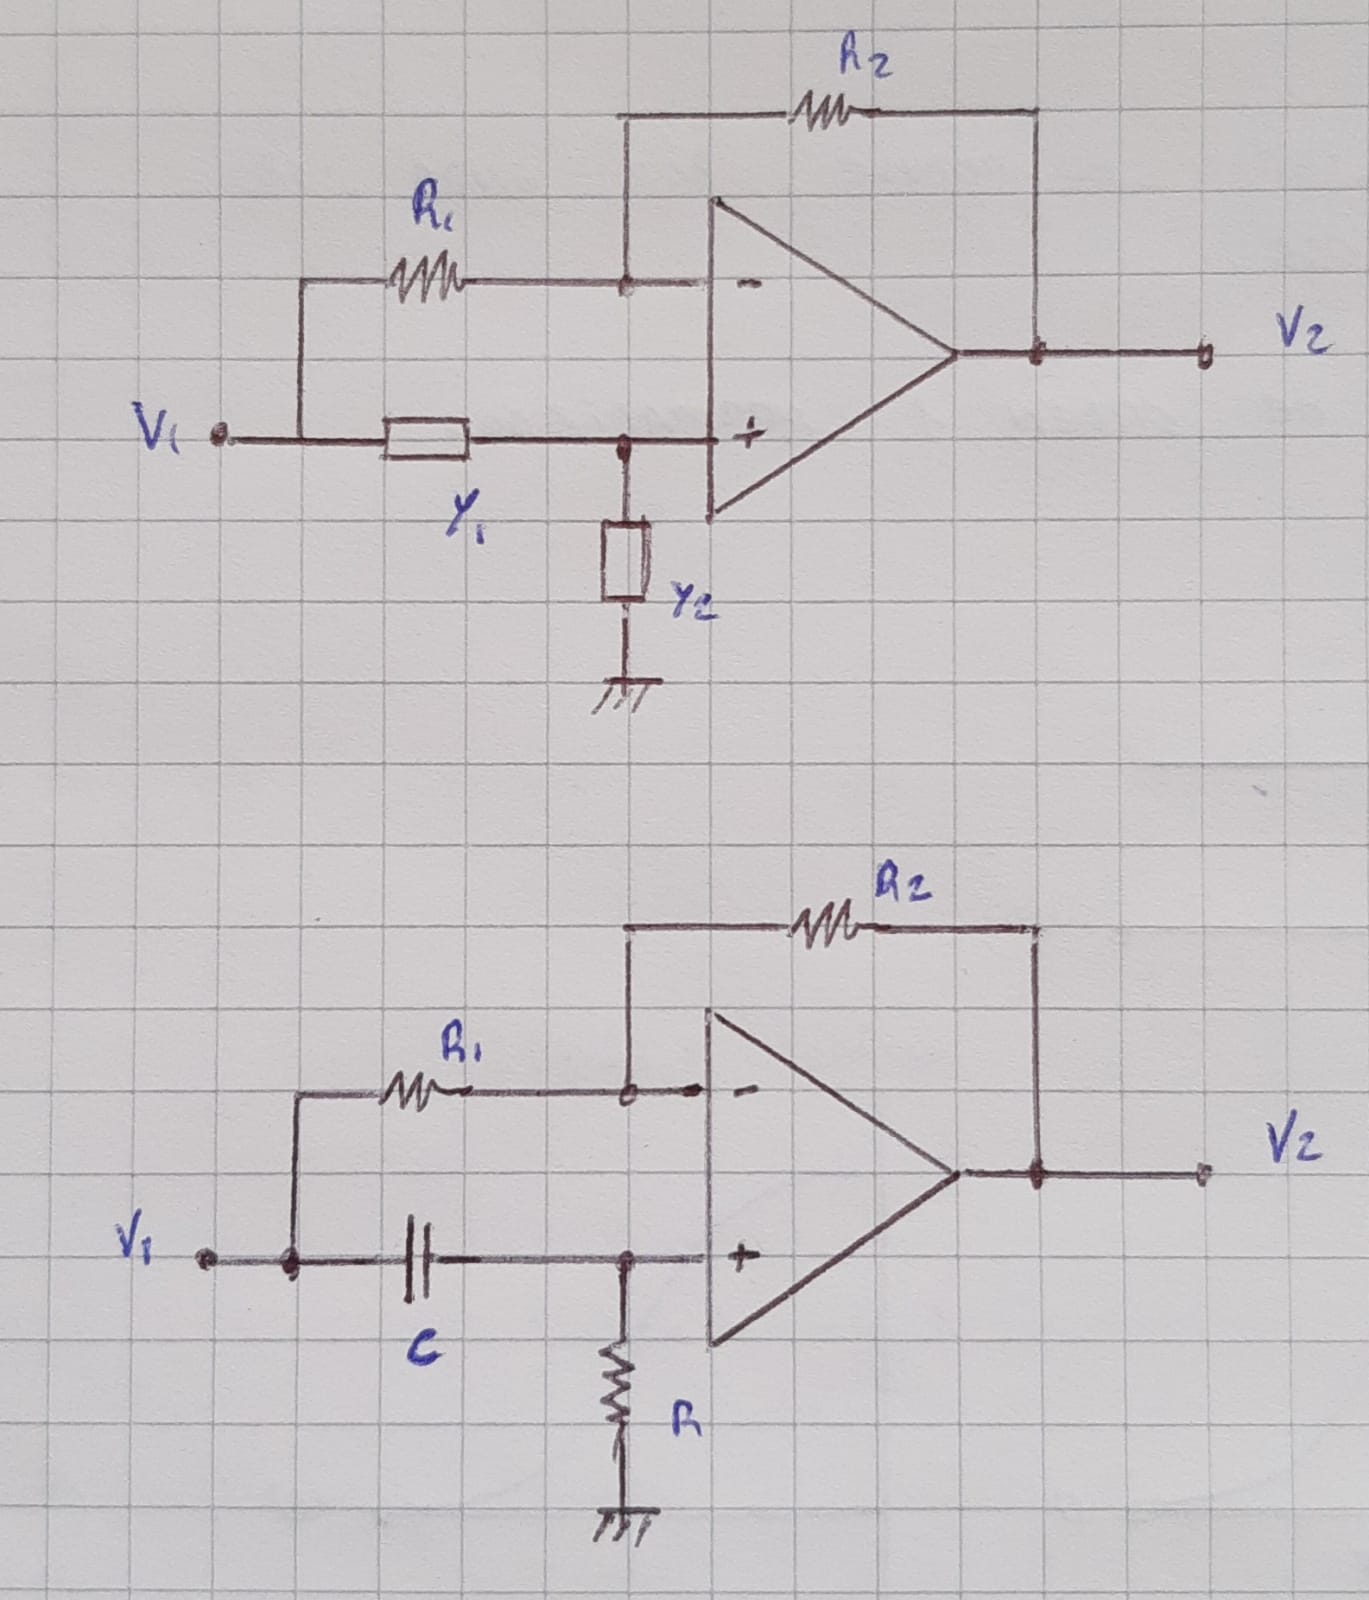 R2
R1
-
V2
V1
+
Y1
Y2
R2
R1
-
V2
V1
+
C
R